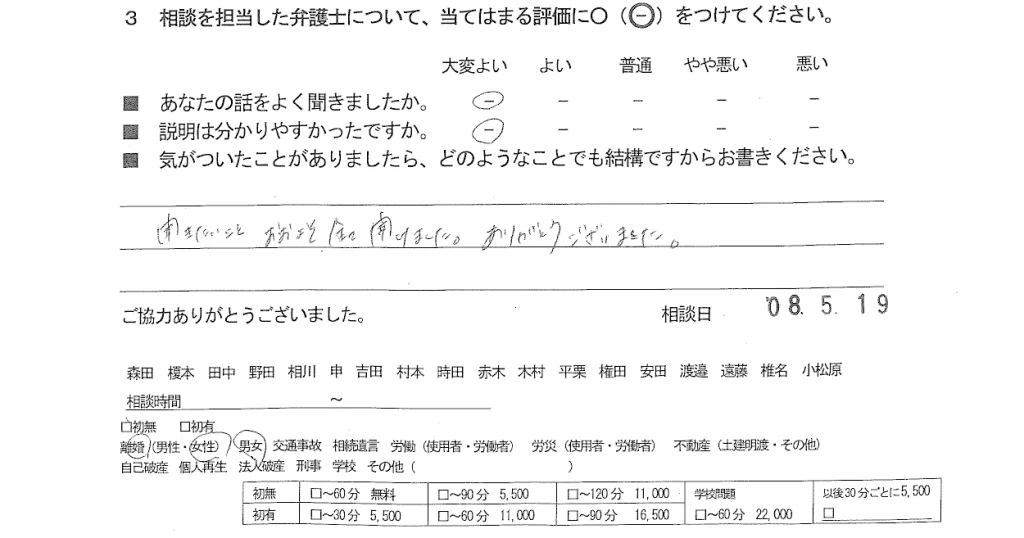 3 相談を担当した弁護士について、当てはまる評価に○（㊀）をつけてください。
大変よい よい 普通 やや悪い 悪い
■ あなたの話をよく聞きましたか。 － － － － －
■ 説明は分かりやすかったですか。 － － － － －
■ 気がついたことがありましたら、どのようなことでも結構ですからお書きください。
聞きたいこと おおよそ 全て 聞けました。ありがとうございました。
ご協力ありがとうございました。 相談日 '08.5.19
森田 榎本 田中 野田 相川 申 吉田 村本 時田 赤木 木村 平栗 権田 安田 渡邉 遠藤 椎名 小松原
相談時間 ～
□初無 □初有
離婚（男性・女性） 男女 交通事故 相続遺言 労働（使用者・労働者） 労災（使用者・労働者） 不動産（土建明渡・その他）
自己破産 個人再生 法人破産 刑事 学校 その他（ ）
初無 □～60分 無料 □～90分 5,500 □～120分 11,000 学校問題 以後30分ごとに5,500
初有 □～30分 5,500 □～60分 11,000 □～90分 16,500 □～60分 22,000 □